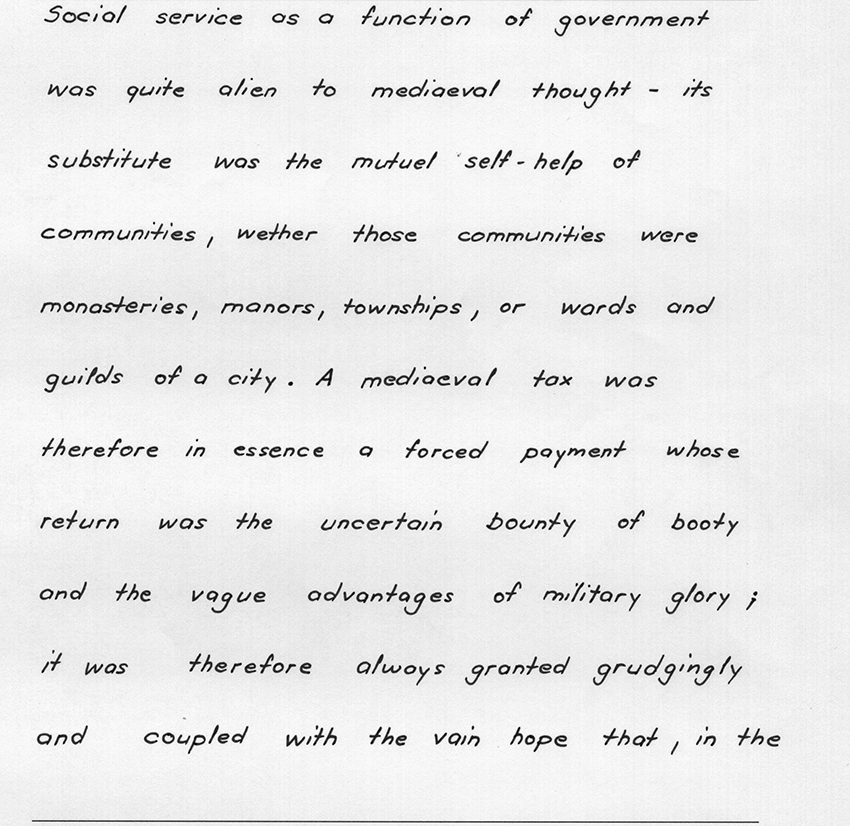 Social service as a function of government
was quite alien to mediaeval thought - its
substitute was the mutuel self-help of
communities, wether those communities were
monasteries, manors, townships, or wards and
guilds of a city. A mediaeval tax was
therefore in essence a forced payment whose
return was the uncertain bounty of booty
and the vague advantages of military glory;
it was therefore always granted grudgingly
and coupled with the vain hope that, in the